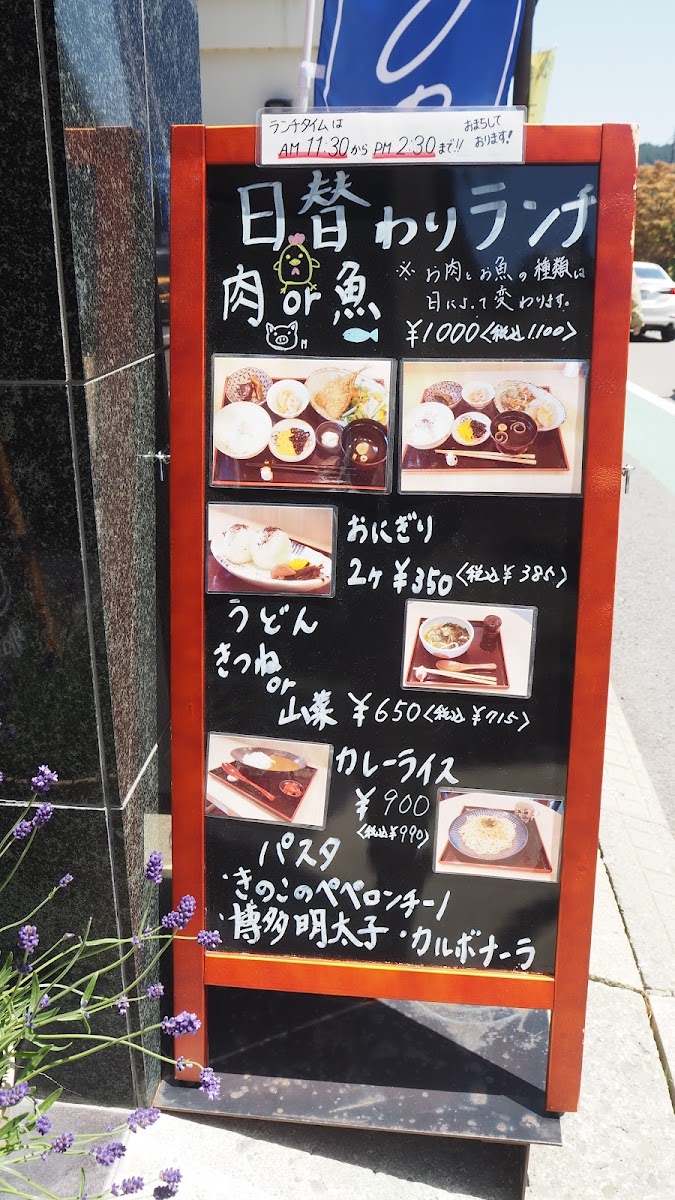 ランチタイムは
AM 11:30から PM 2:30まで!!
おまちして
おります!
日替わりランチ
肉 or 魚
※ お肉とお魚の種類は
日によって変わります。
¥1000<税込1.100>
おにぎり
2ヶ ¥350<税込¥385>
うどん
きつね
or
山菜 ¥650<税込¥715>
カレーライス
¥900
<税込¥990>
パスタ
・きのこのペペロンチーノ
・博多明太子 ・カルボナーラ